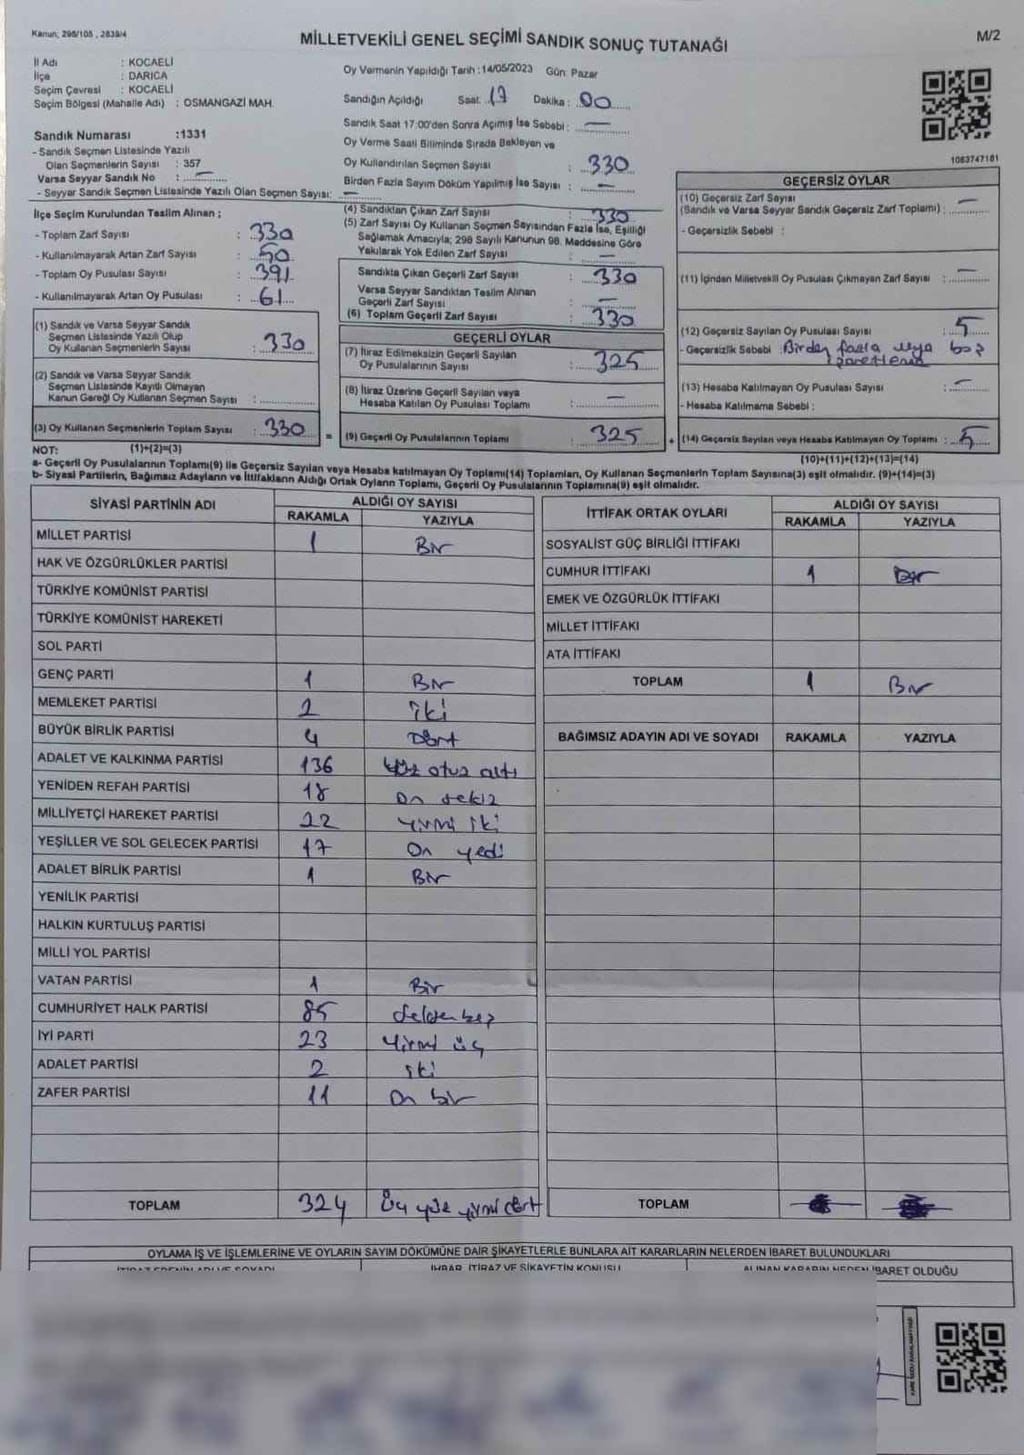 Kanun; 298/105 , 2839/4
MİLLETVEKİLİ GENEL SEÇİMİ SANDIK SONUÇ TUTANAĞI
M/2
İl Adı : KOCAELİ
İlçe : DARICA
Seçim Çevresi : KOCAELİ
Seçim Bölgesi (Mahalle Adı) : OSMANGAZİ MAH.
Sandık Numarası :1331
- Sandık Seçmen Listesinde Yazılı
Olan Seçmenlerin Sayısı : 357
Varsa Seyyar Sandık No : —
- Seyyar Sandık Seçmen Listesinde Yazılı Olan Seçmen Sayısı: —
Oy Vermenin Yapıldığı Tarih :14/05/2023 Gün: Pazar
Sandığın Açıldığı Saat: 17 Dakika : 00
Sandık Saat 17:00'den Sonra Açımış İse Sebebi : —
Oy Verme Saati Bitiminde Sırada Bekleyen ve
Oy Kullandırılan Seçmen Sayısı : 330
Birden Fazla Sayım Döküm Yapılmış İse Sayısı : —
1063747181
İlçe Seçim Kurulundan Teslim Alınan ;
- Toplam Zarf Sayısı : 330
- Kullanılmayarak Artan Zarf Sayısı : 50
- Toplam Oy Pusulası Sayısı : 391
- Kullanılmayarak Artan Oy Pusulası : 61
(1) Sandık ve Varsa Seyyar Sandık
Seçmen Listesinde Yazılı Olup
Oy Kullanan Seçmenlerin Sayısı : 330
(2) Sandık ve Varsa Seyyar Sandık
Seçmen Listesinde Kayıtlı Olmayan
Kanun Gereği Oy Kullanan Seçmen Sayısı :
(3) Oy Kullanan Seçmenlerin Toplam Sayısı : 330
(1)+(2)=(3)
(4) Sandıktan Çıkan Zarf Sayısı : 330
(5) Zarf Sayısı Oy Kullanan Seçmen Sayısından Fazla İse, Eşitliği
Sağlamak Amacıyla; 298 Sayılı Kanunun 98. Maddesine Göre
Yakılarak Yok Edilen Zarf Sayısı : —
Sandıkta Çıkan Geçerli Zarf Sayısı : 330
Varsa Seyyar Sandıktan Teslim Alınan
Geçerli Zarf Sayısı : —
(6) Toplam Geçerli Zarf Sayısı : 330
GEÇERLİ OYLAR
(7) İtiraz Edilmeksizin Geçerli Sayılan
Oy Pusulalarının Sayısı : 325
(8) İtiraz Üzerine Geçerli Sayılan veya
Hesaba Katılan Oy Pusulası Toplamı : —
= (9) Geçerli Oy Pusulalarının Toplamı : 325
GEÇERSİZ OYLAR
(10) Geçersiz Zarf Sayısı
(Sandık ve Varsa Seyyar Sandık Geçersiz Zarf Toplamı) : —
- Geçersizlik Sebebi :
(11) İçinden Milletvekili Oy Pusulası Çıkmayan Zarf Sayısı : —
(12) Geçersiz Sayılan Oy Pusulası Sayısı : 5
- Geçersizlik Sebebi : Birden fazla veya boş
(13) Hesaba Katılmayan Oy Pusulası Sayısı : —
- Hesaba Katılmama Sebebi :
+ (14) Geçersiz Sayılan veya Hesaba Katılmayan Oy Toplamı : 5
(10)+(11)+(12)+(13)=(14)
NOT:
a- Geçerli Oy Pusulalarının Toplamı(9) ile Geçersiz Sayılan veya Hesaba katılmayan Oy Toplamı(14) Toplamları, Oy Kullanan Seçmenlerin Toplam Sayısına(3) eşit olmalıdır. (9)+(14)=(3)
b- Siyasi Partilerin, Bağımsız Adayların ve İttifakların Aldığı Ortak Oyların Toplamı, Geçerli Oy Pusulalarının Toplamına(9) eşit olmalıdır.
SİYASİ PARTİNİN ADI ALDIĞI OY SAYISI
RAKAMLA YAZIYLA
MİLLET PARTİSİ 1 Bir
HAK VE ÖZGÜRLÜKLER PARTİSİ
TÜRKİYE KOMÜNİST PARTİSİ
TÜRKİYE KOMÜNİST HAREKETİ
SOL PARTİ
GENÇ PARTİ 1 Bir
MEMLEKET PARTİSİ 2 iki
BÜYÜK BİRLİK PARTİSİ 4 Dört
ADALET VE KALKINMA PARTİSİ 136 yüz otuz altı
YENİDEN REFAH PARTİSİ 18 on sekiz
MİLLİYETÇİ HAREKET PARTİSİ 22 yirmi iki
YEŞİLLER VE SOL GELECEK PARTİSİ 17 On yedi
ADALET BİRLİK PARTİSİ 1 Bir
YENİLİK PARTİSİ
HALKIN KURTULUŞ PARTİSİ
MİLLİ YOL PARTİSİ
VATAN PARTİSİ 1 Bir
CUMHURİYET HALK PARTİSİ 85 seksen beş
İYİ PARTİ 23 Yirmi üç
ADALET PARTİSİ 2 iki
ZAFER PARTİSİ 11 On bir
TOPLAM 324 Üç yüz yirmi dört
İTTİFAK ORTAK OYLARI ALDIĞI OY SAYISI
RAKAMLA YAZIYLA
SOSYALİST GÜÇ BİRLİĞİ İTTİFAKI
CUMHUR İTTİFAKI 1 Bir
EMEK VE ÖZGÜRLÜK İTTİFAKI
MİLLET İTTİFAKI
ATA İTTİFAKI
TOPLAM 1 Bir
BAĞIMSIZ ADAYIN ADI VE SOYADI RAKAMLA YAZIYLA
TOPLAM
OYLAMA İŞ VE İŞLEMLERİNE VE OYLARIN SAYIM DÖKÜMÜNE DAİR ŞİKAYETLERLE BUNLARA AİT KARARLARIN NELERDEN İBARET BULUNDUKLARI
İTİRAZ EDENİN ADI VE SOYADI İHBAR, İTİRAZ VE ŞİKAYETİN KONUSU ALINAN KARARIN NEDEN İBARET OLDUĞU